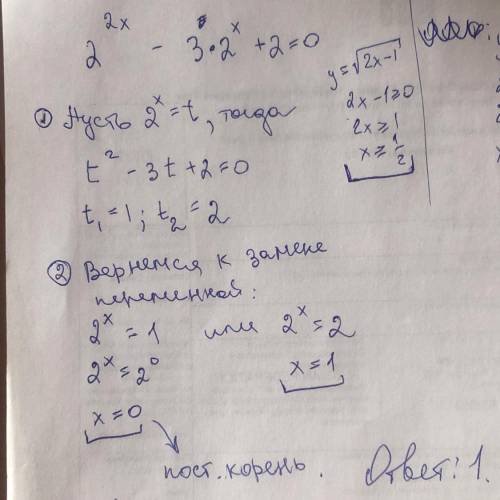 2^{2x} - 3·2^x + 2 = 0
① Пусть 2^x = t, тогда
t^2 - 3t + 2 = 0
t_1 = 1; t_2 = 2
② Вернемся к замене
переменной:
2^x = 1 или 2^x = 2
2^x = 2^0
x = 1
x = 0
пост. корень.
Ответ: 1.
y = √(2x-1)
2x - 1 ≥ 0
2x ≥ 1
x ≥ 1/2